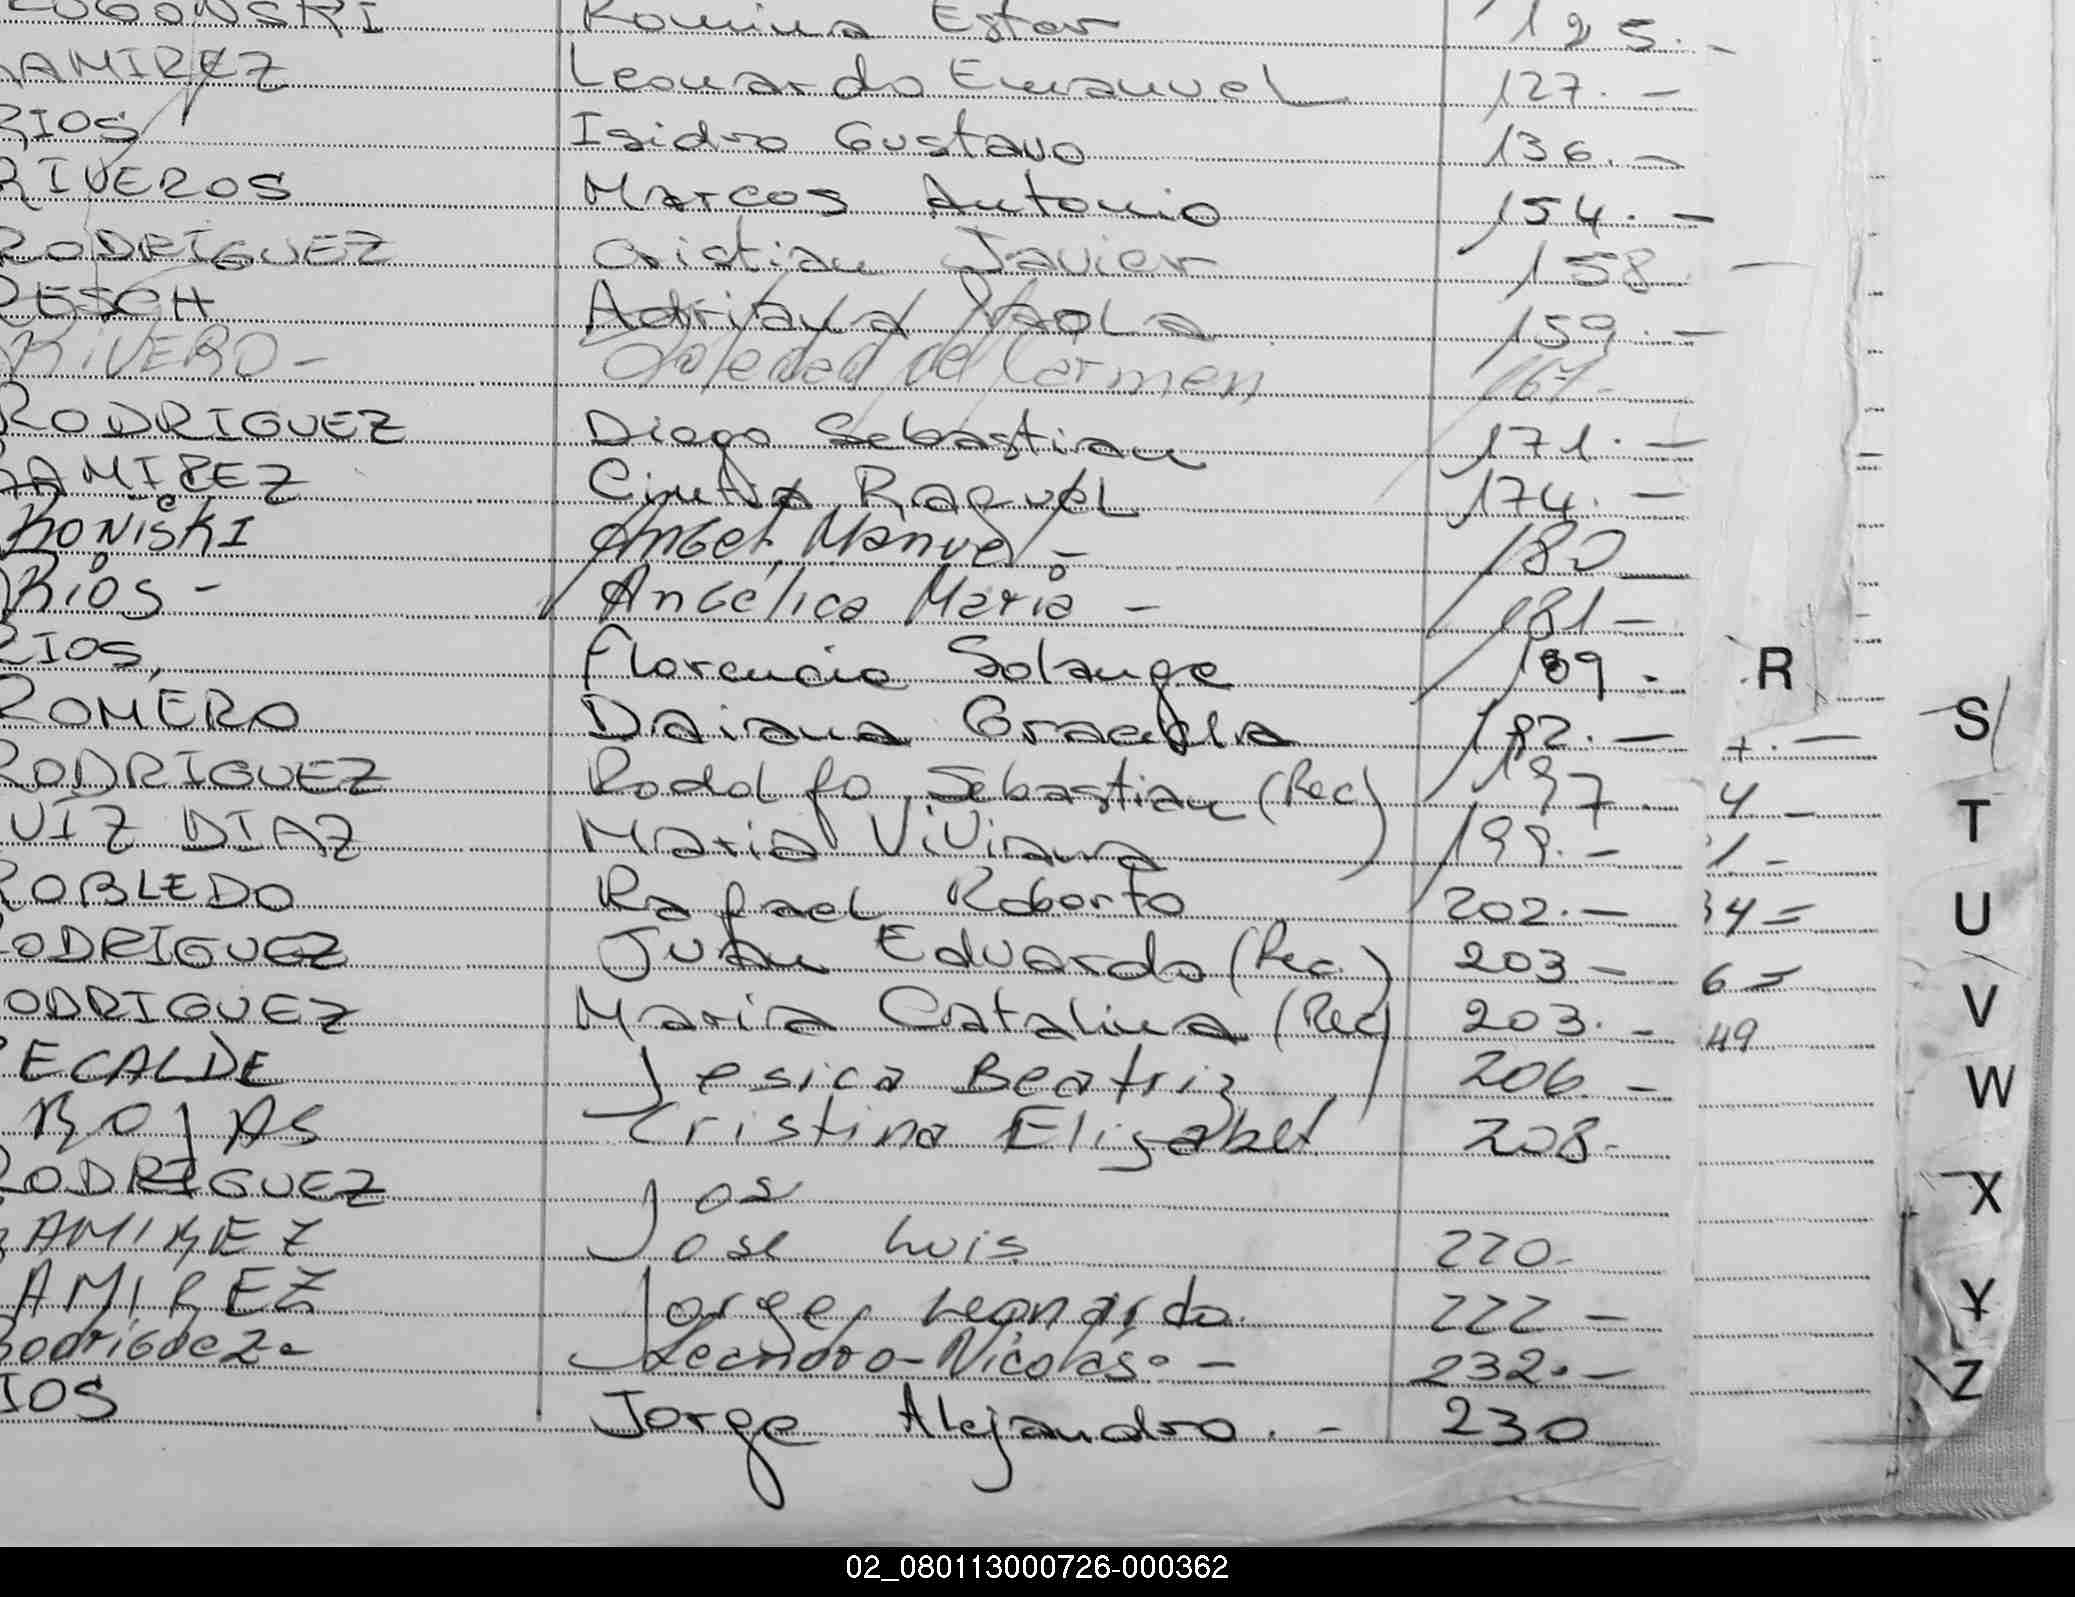 Romina Ester 125.-
RAMIREZ Leonardo Emanuel 127.-
RIOS Isidro Gustavo 136.-
RIVEROS Marcos Antonio 154.-
RODRIGUEZ Cristian Javier 158.-
RESCH Adriana Paola 159.-
RIVERO- Soledad del Carmen 167.-
RODRIGUEZ Diego Sebastian 171.-
RAMIREZ Cintia Raquel 174.-
KONISKI Angel Manuel- 180
RIOS- Angélica Maria- 181-
RIOS, Florencia Solange 189.
R
ROMERO Daiana Graciela 192.-
S
RODRIGUEZ Rodolfo Sebastian (Rec) 197. 4-
T
UIZ DIAZ Maria Viviana 199.- 1-
ROBLEDO Rafael Roberto 202.- 34=
U
RODRIGUEZ Juan Eduardo (Rec.) 203- 6=
V
RODRIGUEZ Maria Catalina (Rec) 203.- 49
RECALDE Jesica Beatriz 206.-
W
ROJAS Cristina Elizabet 208-
RODRIGUEZ Jos
X
RAMIREZ Jose Luis. 220-
RAMIREZ Jorge Leonardo. 222-
Y
Rodriguez- Leandro-Nicolás.- 232.-
Z
IOS Jorge Alejandro.- 230
02_080113000726-000362